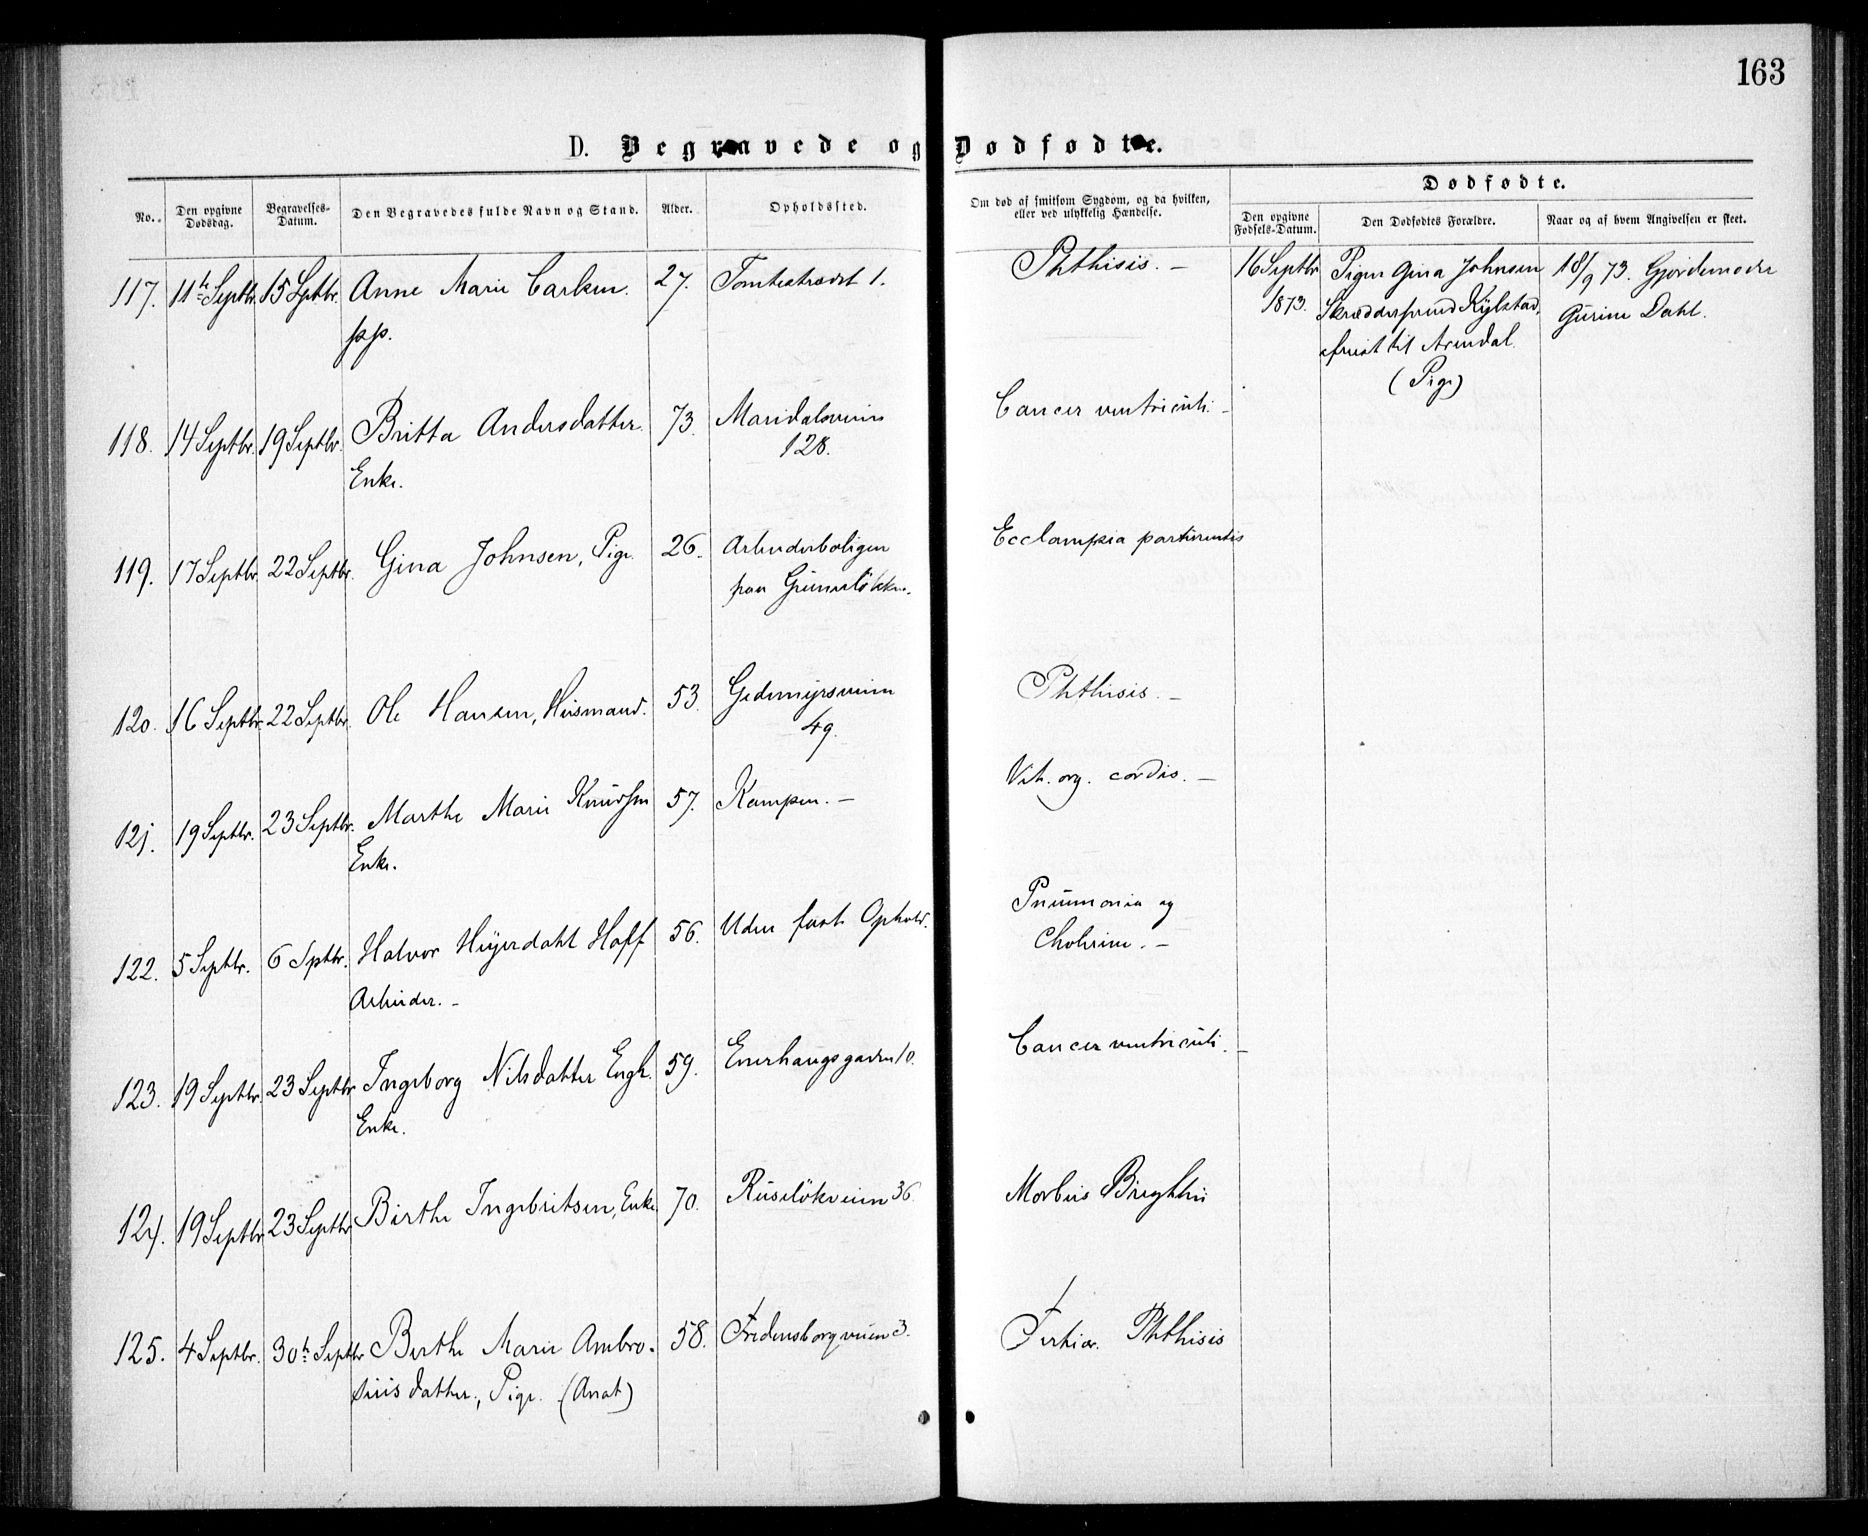 163
D. Begravede og Dødfødte.
No. Den opgivne Dødsdag. Begravelses-Datum. Den Begravedes fulde Navn og Stand. Alder. Opholdssted. Om død af smitsom Sygdom, og da hvilken, eller ved ulykkelig Hændelse. Dødfødte.
Den opgivne Fødsels-Datum. Den Dødfødtes Forældre. Naar og af hvem Angivelsen er skeet.
117. 11te Septbr. 15 Septbr. Anne Marie Carlsen. 27. Tomtestrædet 1. Phthisis. – 16 Septbr Pigen Gina Johnsen 18/9 73. Gjordemoder
1873. Skræddersvend Kylstad, Gurine Dahl.
p.p. reist til Arendal.
(Pige)
118. 14 Septbr. 19 Septbr. Britta Andersdatter 73. Maridalsveien Cancer ventriculi. –
128.
Enke.
119. 17 Septbr. 22 Septbr. Gina Johnsen, Pige. 26. Arbeiderboligen Ecclampsia parturientis
paa Grünerløkken.
120. 16 Septbr. 22 Septbr. Ole Hansen, Husmand. 53. Gedemyrsveien Phthisis. –
49.
121. 19 Septbr. 23 Septbr. Marthe Marie Knudsen 57. Kampen. – Vit. org. cordis. –
Enke.
122. 5 Septbr. 6 Septbr. Halvor Heyerdahl Hoff 56. Uden fast Ophold. Pneumonia og
Cholerine. –
Arbeider. –
123. 19 Septbr. 23 Septbr Ingeborg Nilsdatter Engh. 59. Enerhaugsgaden 10. Cancer ventriculi. –
Enke.
124. 19 Septbr 23 Septbr Birthe Ingebritsen, Enke 70. Ruseløkveien 36. Morbus Brightii
125. 4 Septbr. 30te Septbr Berthe Marie Ambro- 58. Fredensborgveien 3. Tertiær. Phthisis
siusdatter, Pige. (Anat)